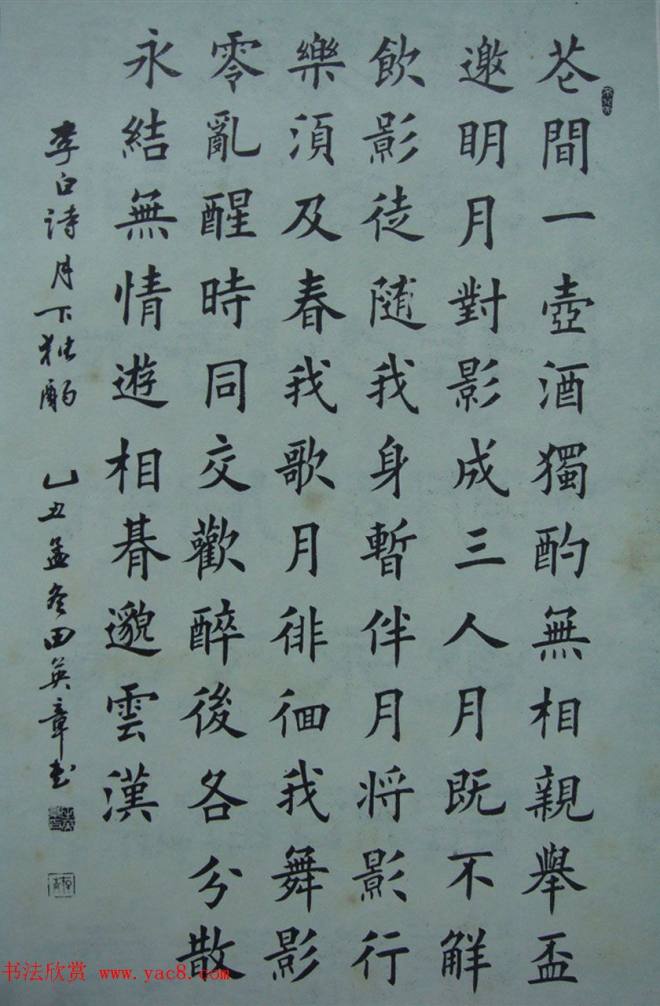 苍間一壺酒獨酌無相親舉盃
邀明月對影成三人月既不解
飲影徒随我身暫伴月将影行
樂須及春我歌月徘徊我舞影
零亂醒時同交歡醉後各分散
永結無情遊相朞邈雲漢
李白詩月下独酌 乙丑孟冬田英章书
书法欣赏 www.yac8.com